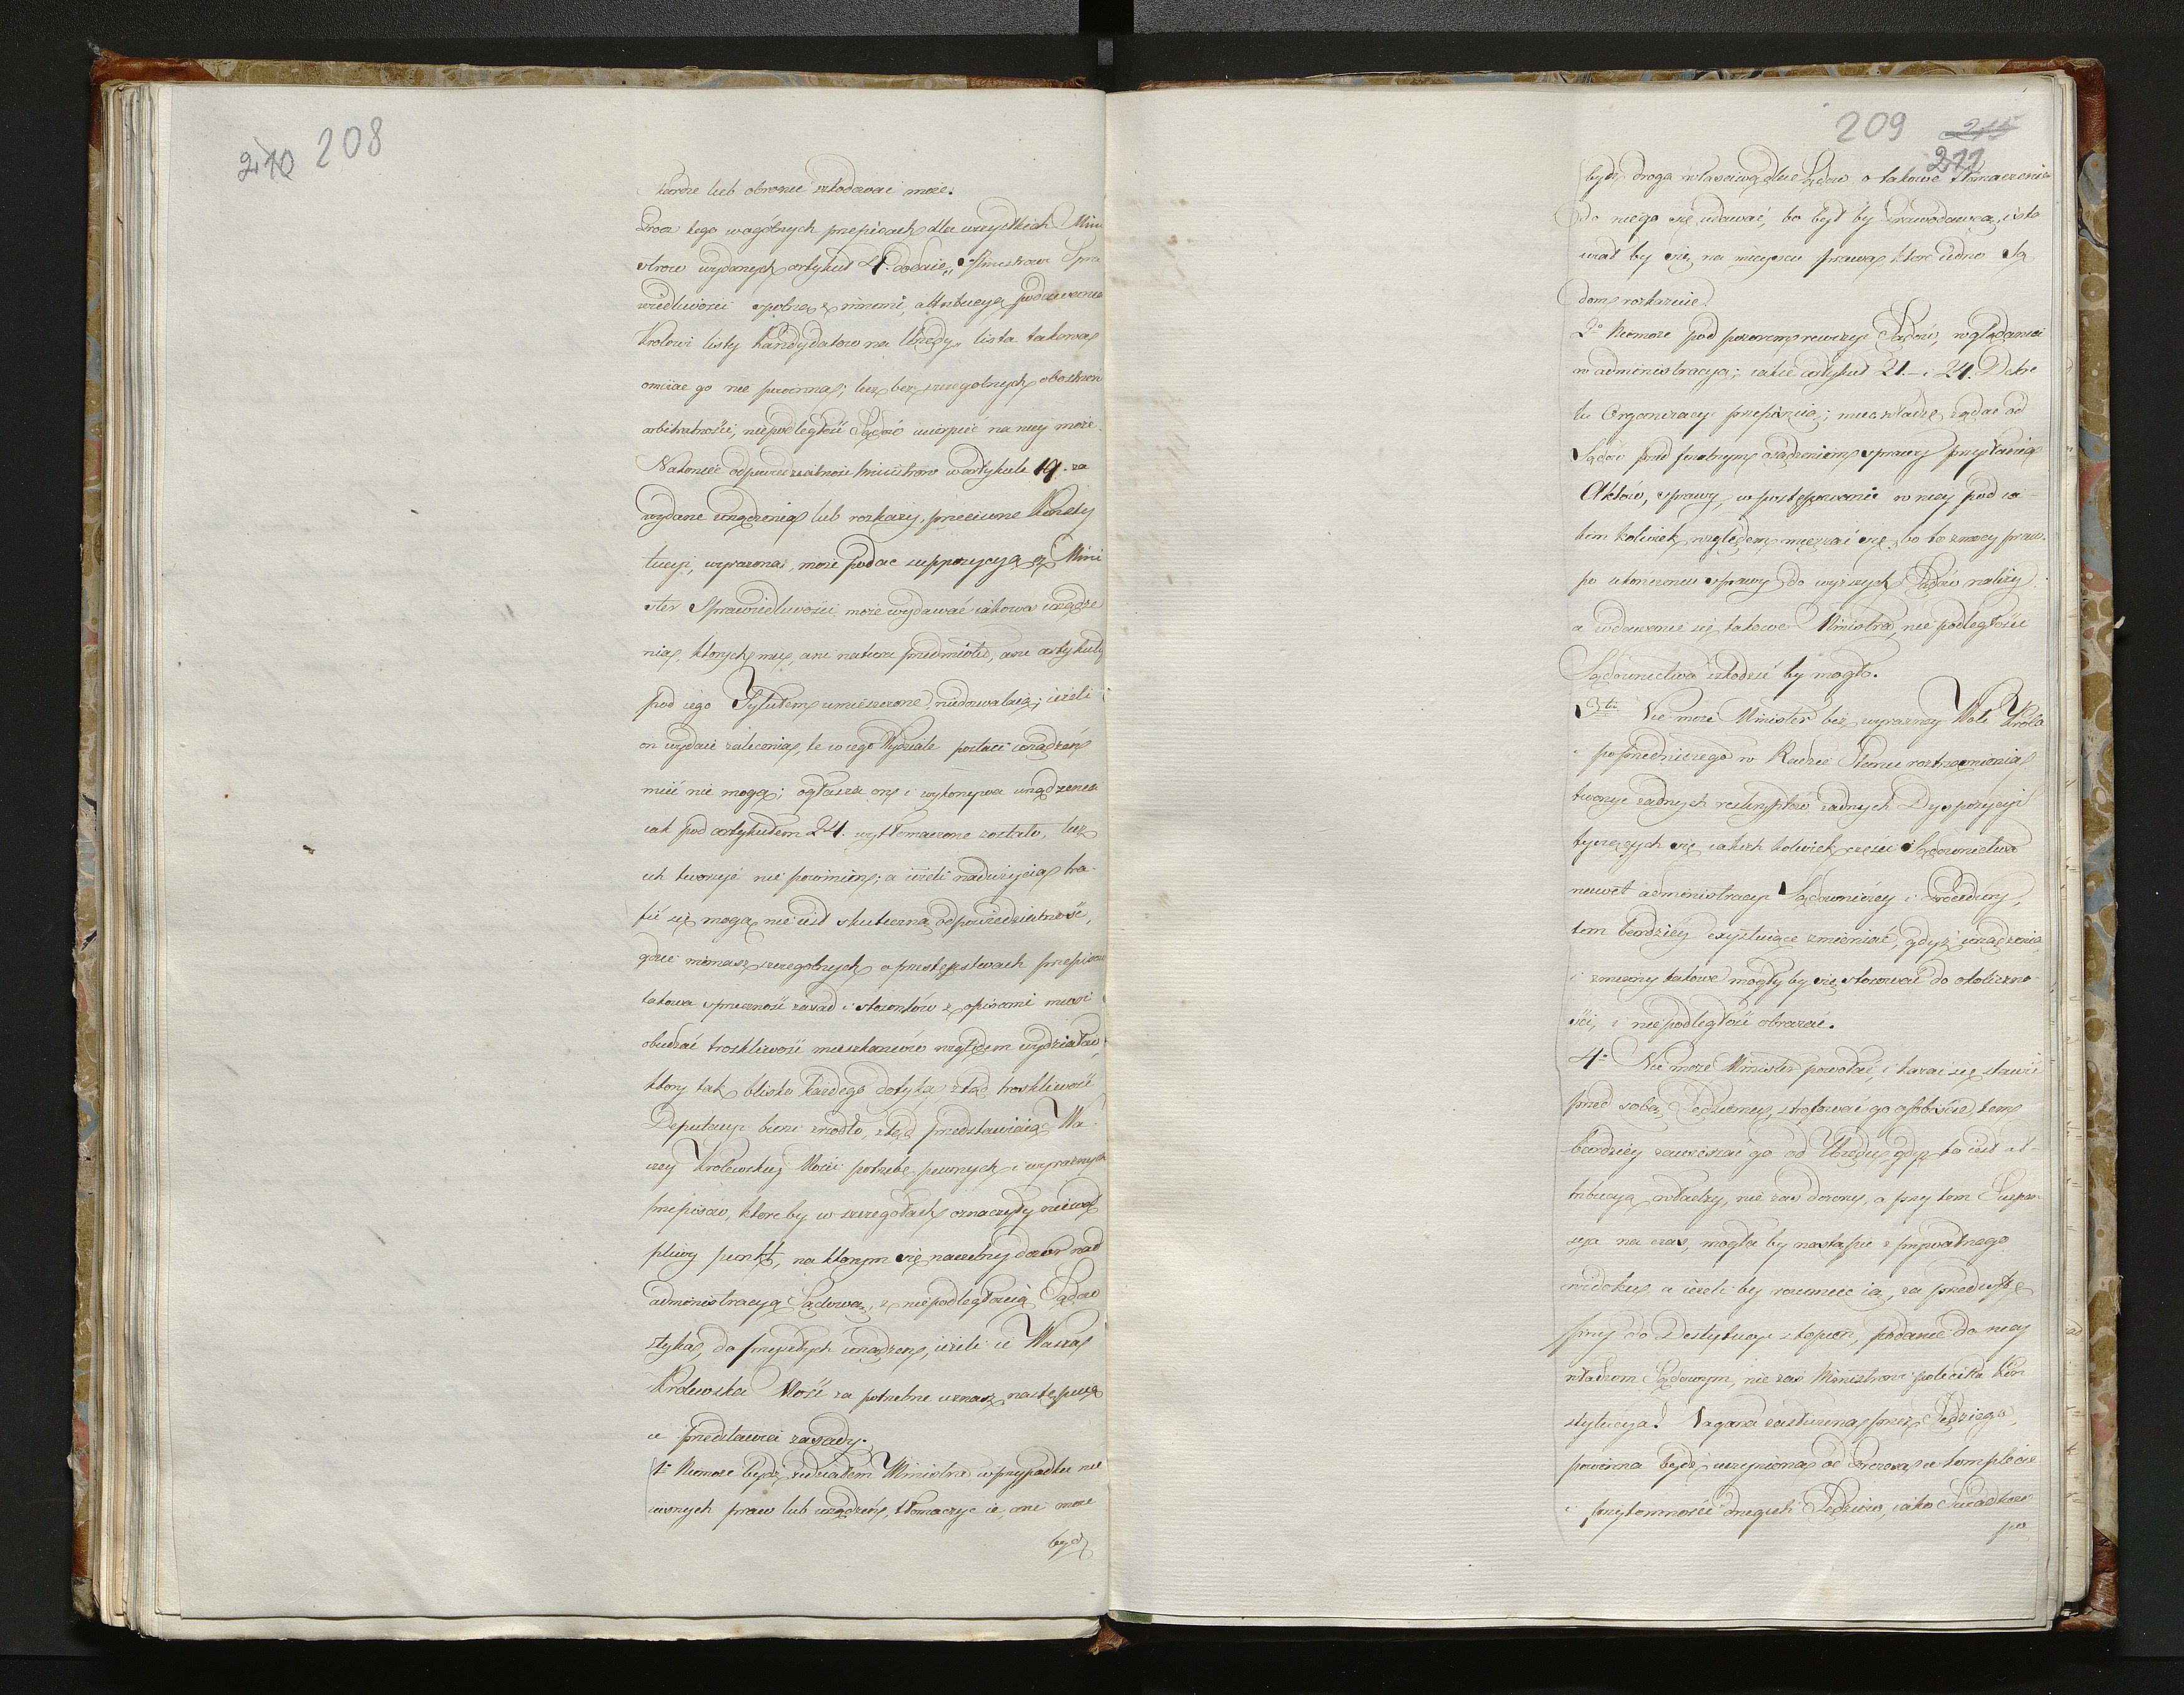 210 208
karze lub obronie szkodować może.
Procz tego wogólnych przepisach dla wszystkich Mini
strow wydanych artykuł 4. dodaie, Ministrowi Spra
wiedliwości spolną z innemi attrybucyą podawania
Krolowi listy Kandydatow na Urzędy, lista takowa
omiiać go nie powinna; lecz bez szczegolnych obostrzeń
arbitralności, niepodległość Sądów uciśpić na niey może.
Nakoniec odpowiedzialność Ministrow wartykule 19. za
wydane urządzenia lub rozkazy, przeciwne Konsty
tucyi, wyrażona, może podać suppozycyą, iż Mini
ster Sprawiedliwości może wydawać iakowe urządze
nia, ktorych mu, ani natura przedmiotu, ani artykuły
pod iego Tytułem umieszczone, niedozwalaią; ieżeli
on wydaie zalecenia, te w iego Wydziale postaci urządzeń
mieć nie mogą; ogłasza on i wykonywa urządzenia
iak pod artykułem 24. wytłomaczone zostało, lecz
ich tworzyć nie powinien; a ieżeli nadużycia tra-
fić się mogą, nie iest skuteczną odpowiedzialność,
gdzie niemasz szczegolnych o przestępstwach przepisow
takowa sprzeczność zasad i stosunków z opisami musi
obudzać troskliwość mieszkańców względem wydziału,
ktory tak blisko każdego dotyka, ztąd troskliwość
Deputacyi bierze zrzodło, ztąd przedstawiaiąc Wa-
szey Krolewskiey Mości potrzebę pewnych i wyraznych
przepisow, ktore by w szczegołach oznaczyły niewąt
pliwy punkt, na ktorym się naczelny dozor nad
administracyą Sądową, z niepodległością Sądow
styka, do przyszłych urządzeń, ieżeli ie Wasza
Krolewska Mość za potrzebne uzna, następuią
ce przedstawia zasady.
1o Niemoże bydź udziałem Ministra w przypadku nie
iasnych praw lub urządzeń, tłomaczyć ie, ani może
bydź

209 215
211
bydź drogą właściwą dla Sądow o takowe tłomaczenie
do niego się udawać, bo był by Prawodawcą, i sta
wiał by się na mieyscu prawa, ktore iedno Są
dom rozkazuie.
2o Niemoże pod pozorem rewizyi Sądów, wglądania
w administracyą; iakie artykuł 21. i 24. Dekre
tu Organizacyi przepisuią; mieć władzę żądać od
Sądów przed finalnym osądzeniem sprawy przysłania
Aktów, sprawy, w postępowanie w niey pod ia-
kim kolwiek względem mięszać się, bo to z mocy praw.
po ukończeniu sprawy do wyższych Sądów należy
a wdawanie się takowe Ministra, niepodległości
Sądownictwa szkodzić by mogło.
3tio Nie może Minister bez wyrazney Woli Króla
i poprzedniczego w Radzie Stanu roztrząśnienia
tworzyć żadnych reskryptów żadnych Dyspozycyi
tyczących się iakich kolwiek części Sądownictwa
nawet administracyi Sądowniczey i Procedury,
tem bardziey exystuiące zmieniać, gdyż urządzenia
i zmiany takowe mogły by się stosować do okoliczno-
ści, i niepodległość obrażać.
4o Nie może Minister powołać, i kazać się stawić
przed sobą Sędziemu, strofować go osobiście, tem
bardziey zawieszać go od Urzędu, gdyż to iest at-
trybucyą władzy, nie zaś dozoru, a przy tem Suspen-
sya na czas, mogła by nastąpić z prywatnego
widoku, a ieżeli by rozumieć ią, za przeduyfę
przy do Destytucyi stopień, podanie do niey
władzom Sądowym, nie zaś Ministrowi poleciła Kon
stytucya. Nagana zasłużona przez Sędziego,
powinna bydź uczyniona od Prezesa w komplecie
i przytomności drugich Sędziow, iako Świadkow
po